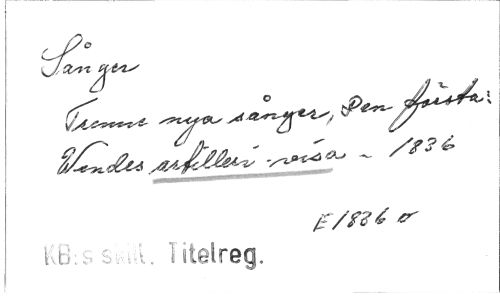 Sånger
Trenne nya sånger, Den första:
Wendes artilleri-visa - 1836
E 1836 o
KB:s skill. Titelreg.